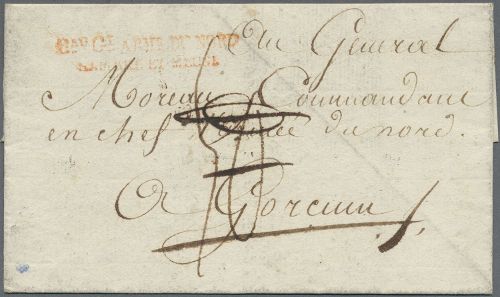 ARME DU NORD
Au General
Moreau Commandant
en chef l'armée du nord.
A Gorcum